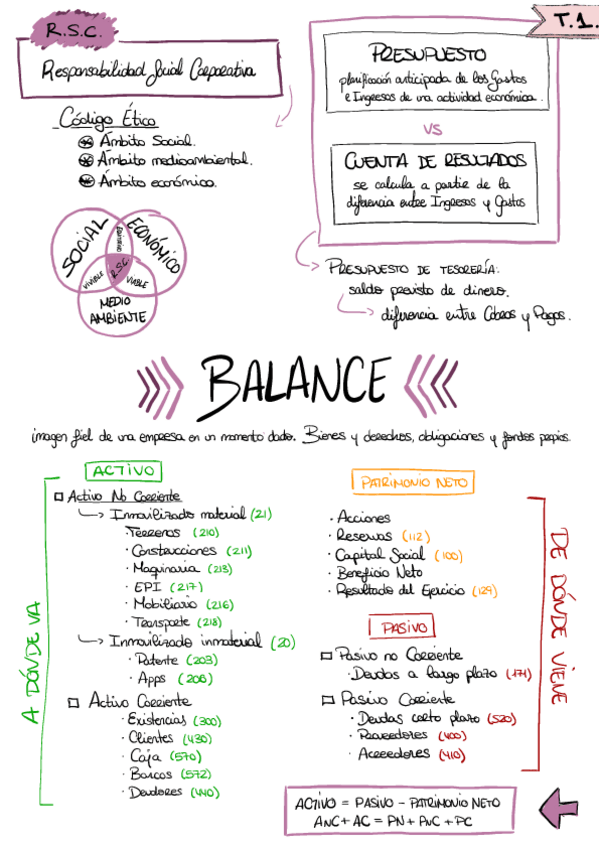 R.S.C.
Responsabilidad Social Corporativa
Código Ético
Ámbito Social.
Ámbito medioambiental.
Ámbito económico.
SOCIAL
ECONÓMICO
EQUITATIVO
R.S.C.
VIVIBLE
VIABLE
MEDIO
AMBIENTE
T.1.
PRESUPUESTO
planificación anticipada de los Gastos
e Ingresos de una actividad económica.
VS
CUENTA DE RESULTADOS
se calcula a partir de la
diferencia entre Ingresos y Gastos
PRESUPUESTO DE TESORERÍA:
saldo previsto de dinero.
diferencia entre Cobros y Pagos.
BALANCE
imagen fiel de una empresa en un momento dado. Bienes y derechos, obligaciones y fondos propios.
A DÓNDE VA
ACTIVO
Activo No Corriente
Inmovilizado material (21)
· Terrenos (210)
· Construcciones (211)
· Maquinaria (213)
· EPI (217)
· Mobiliario (216)
· Transporte (218)
Inmovilizado inmaterial (20)
· Patente (203)
· Apps (206)
Activo Corriente
· Existencias (300)
· Clientes (430)
· Caja (570)
· Bancos (572)
· Deudores (440)
PATRIMONIO NETO
· Acciones
· Reservas (112)
· Capital Social (100)
· Beneficio Neto
· Resultado del Ejercicio (129)
PASIVO
Pasivo no Corriente
· Deudas a largo plazo (171)
Pasivo Corriente
· Deudas corto plazo (520)
· Proveedores (400)
· Acreedores (410)
DE DÓNDE VIENE
ACTIVO = PASIVO - PATRIMONIO NETO
ANC + AC = PN + PNC + PC